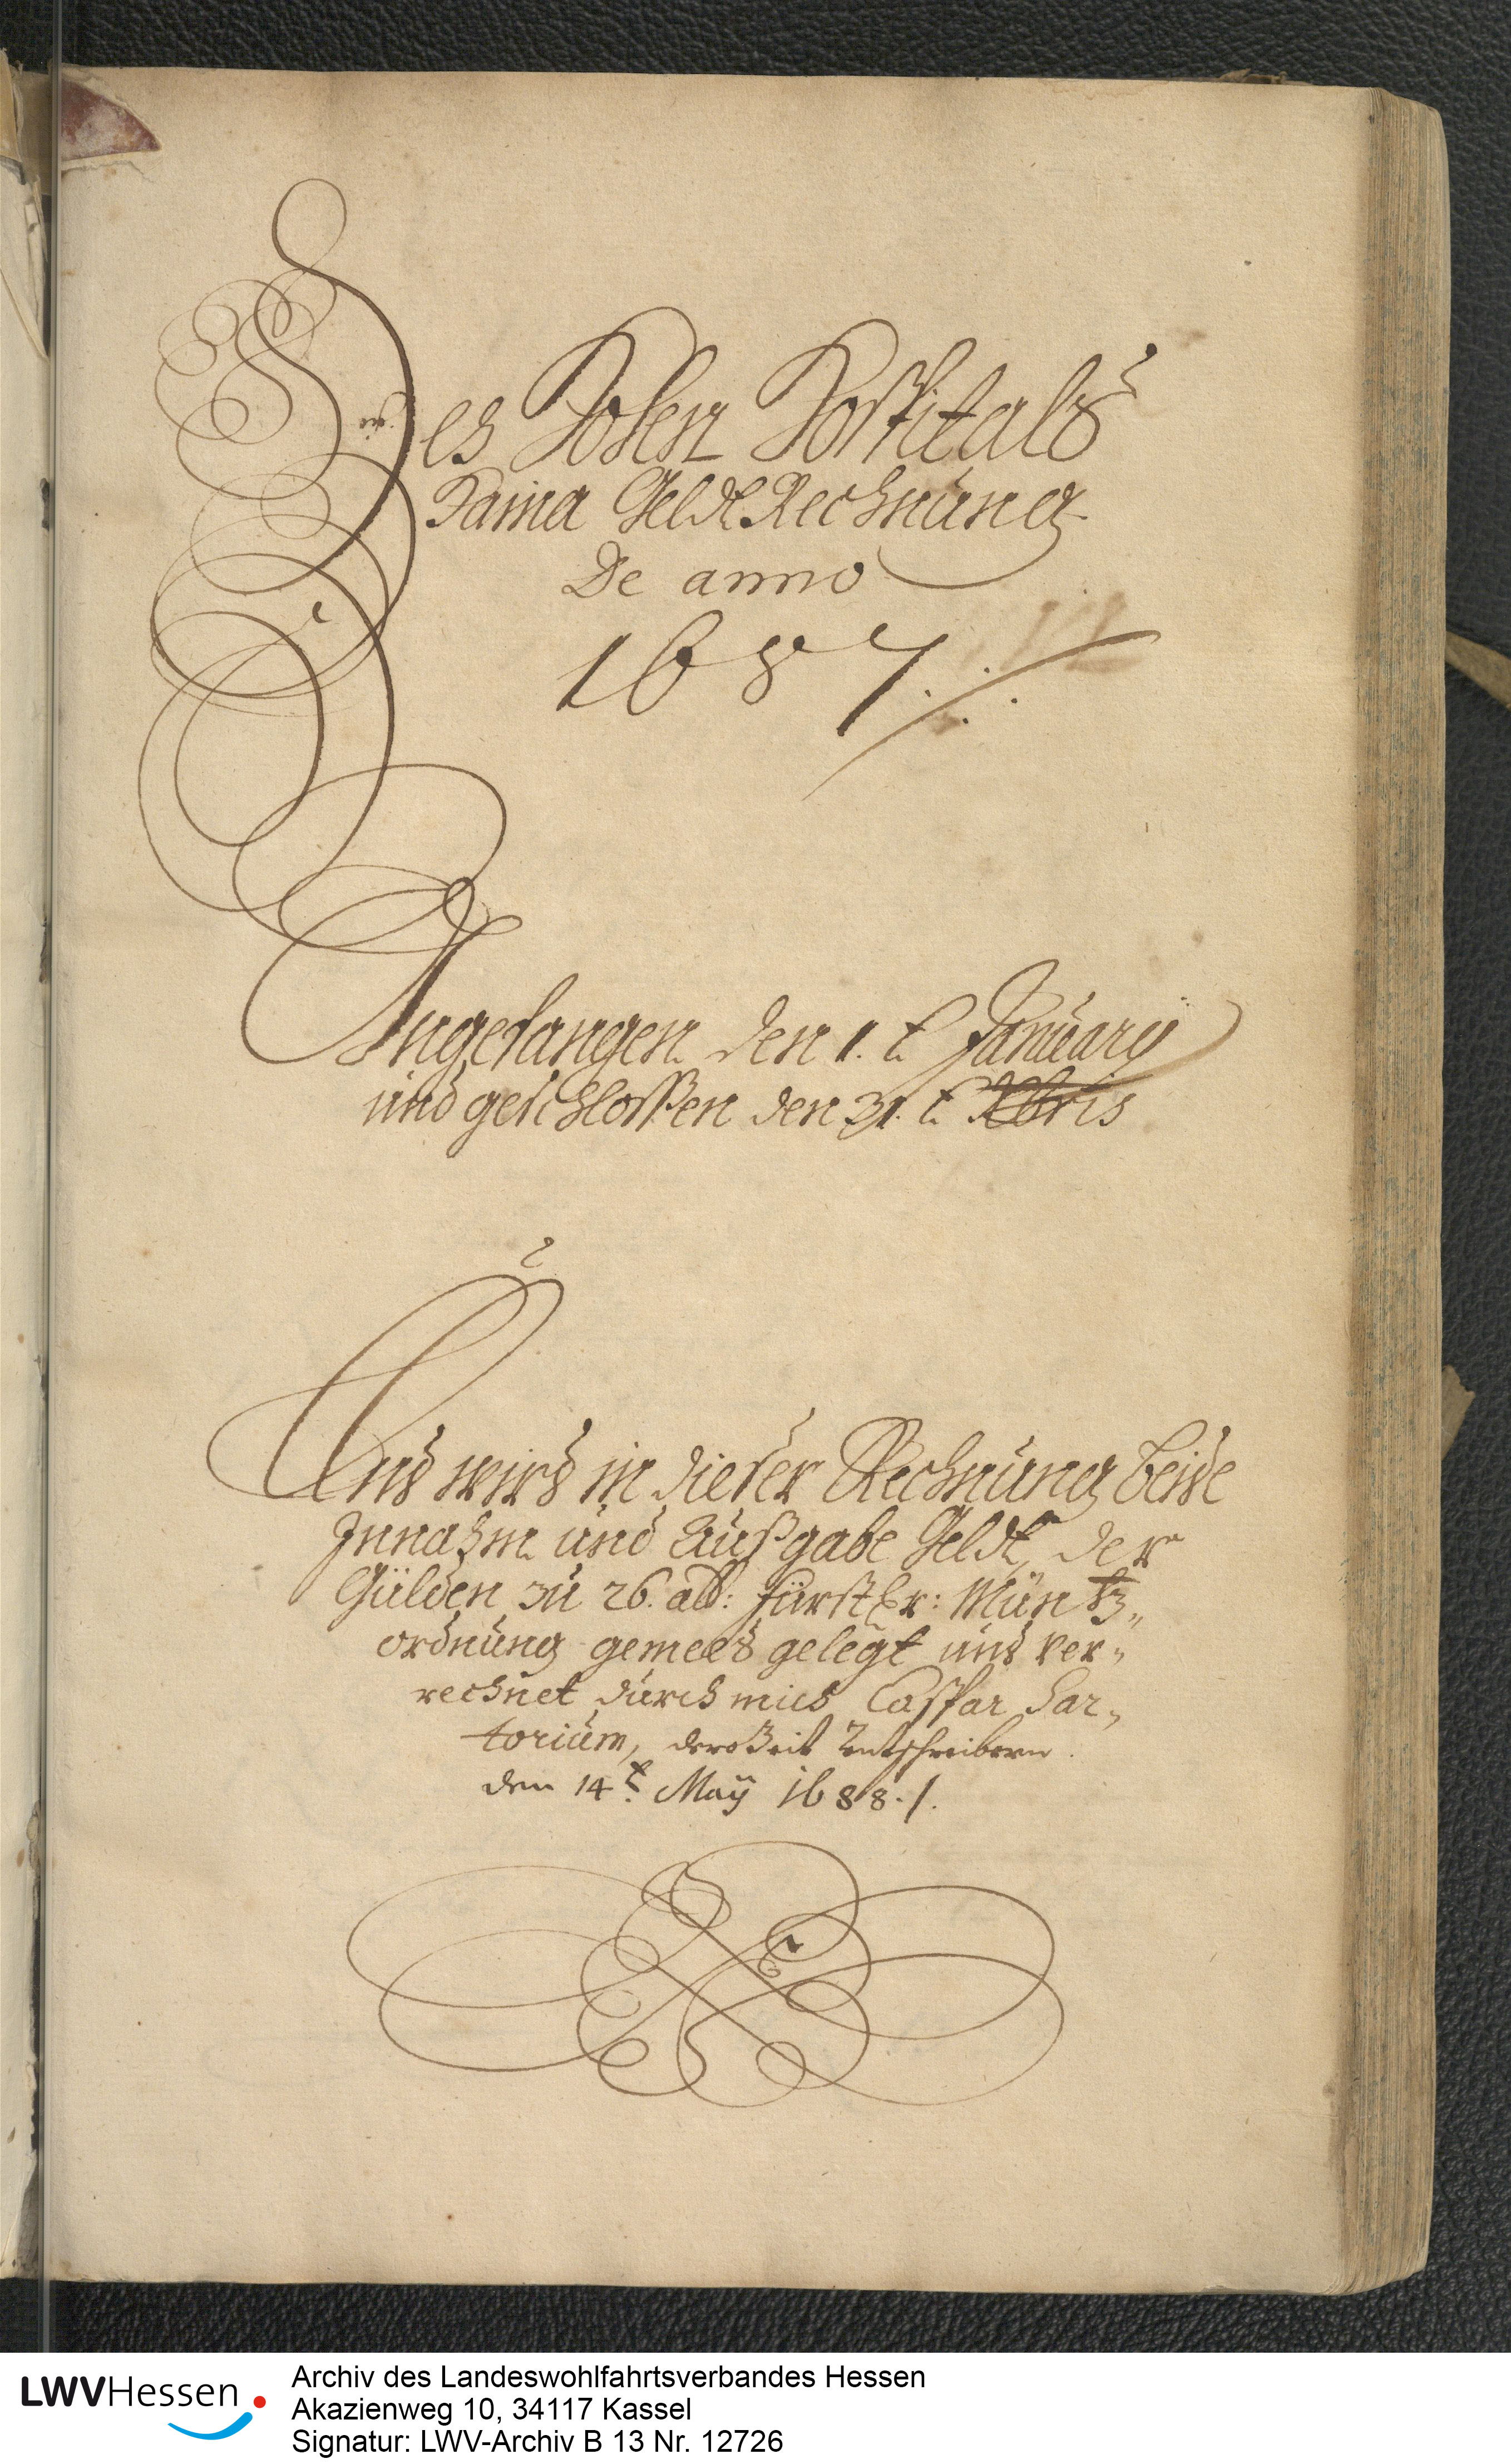 Des Hohen Hospitals
Haina Geldt Rechnung
De anno
1687./.
Angefangen den 1.t January
und geschloßen den 31.t Xbris
Und wird in dießer Rechnung beide
Innahm und Außgabe Geldt, der
Gülden zu 26. alb: fürstler: Müntz„
ordnung gemees gelegt und ver„
rechnet durch mich Caspar Sar„
torium, deroZeit Entschreibern.
den 14t. Maÿ 1688./.
LWVHessen
Archiv des Landeswohlfahrtsverbandes Hessen
Akazienweg 10, 34117 Kassel
Signatur: LWV-Archiv B 13 Nr. 12726